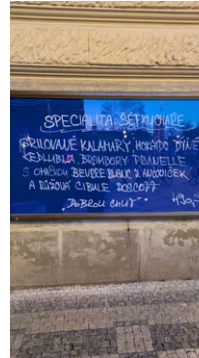 SPECIALITA ŠÉFKUCHAŘE
GRILOVANÉ KALAMÁRY, HOKAIDO DÝNĚ
KEDLUBNA, BRAMBORY PRUNELLE
S OMÁČKOU BEURRE BLANC Z ANČOVIČEK
A RŮŽOVÁ CIBULE
"DOBROU CHUŤ"